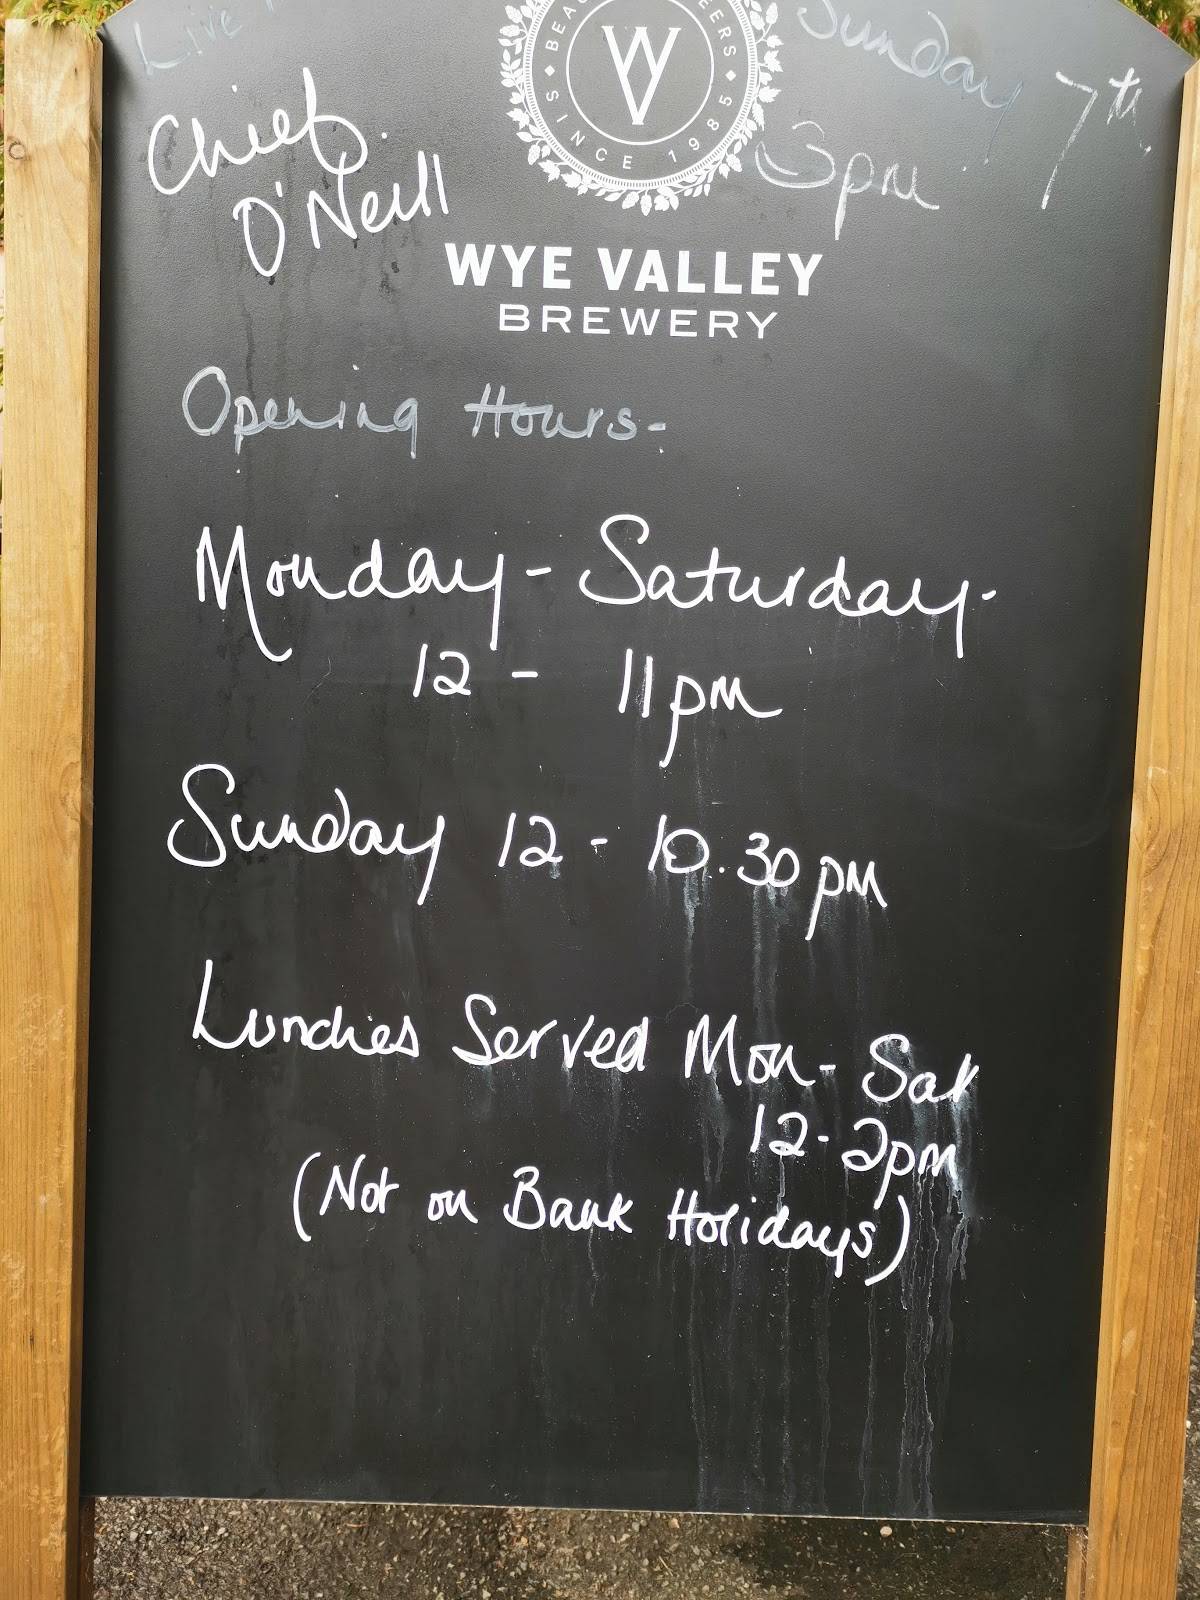 Live
Sunday 7th
3pm
Chief
O'Neill
SINCE 1985
W
WYE VALLEY
BREWERY
Opening Hours-
Monday - Saturday-
12 - 11pm
Sunday 12 - 10.30pm
Lunches Served Mon- Sat
12-2pm
(Not on Bank Holidays)